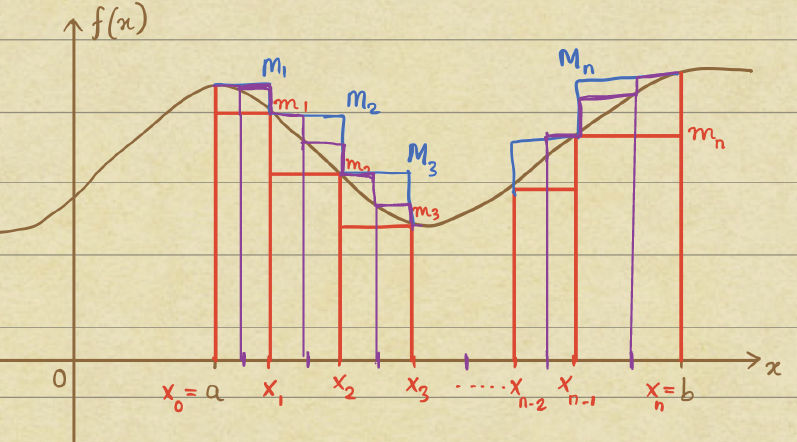 f(x)
M₁
m₁
M₂
m₂
M₃
m₃
Mₙ
mₙ
0
x₀ = a
x₁
x₂
x₃
......
xₙ₋₂
xₙ₋₁
xₙ = b
x